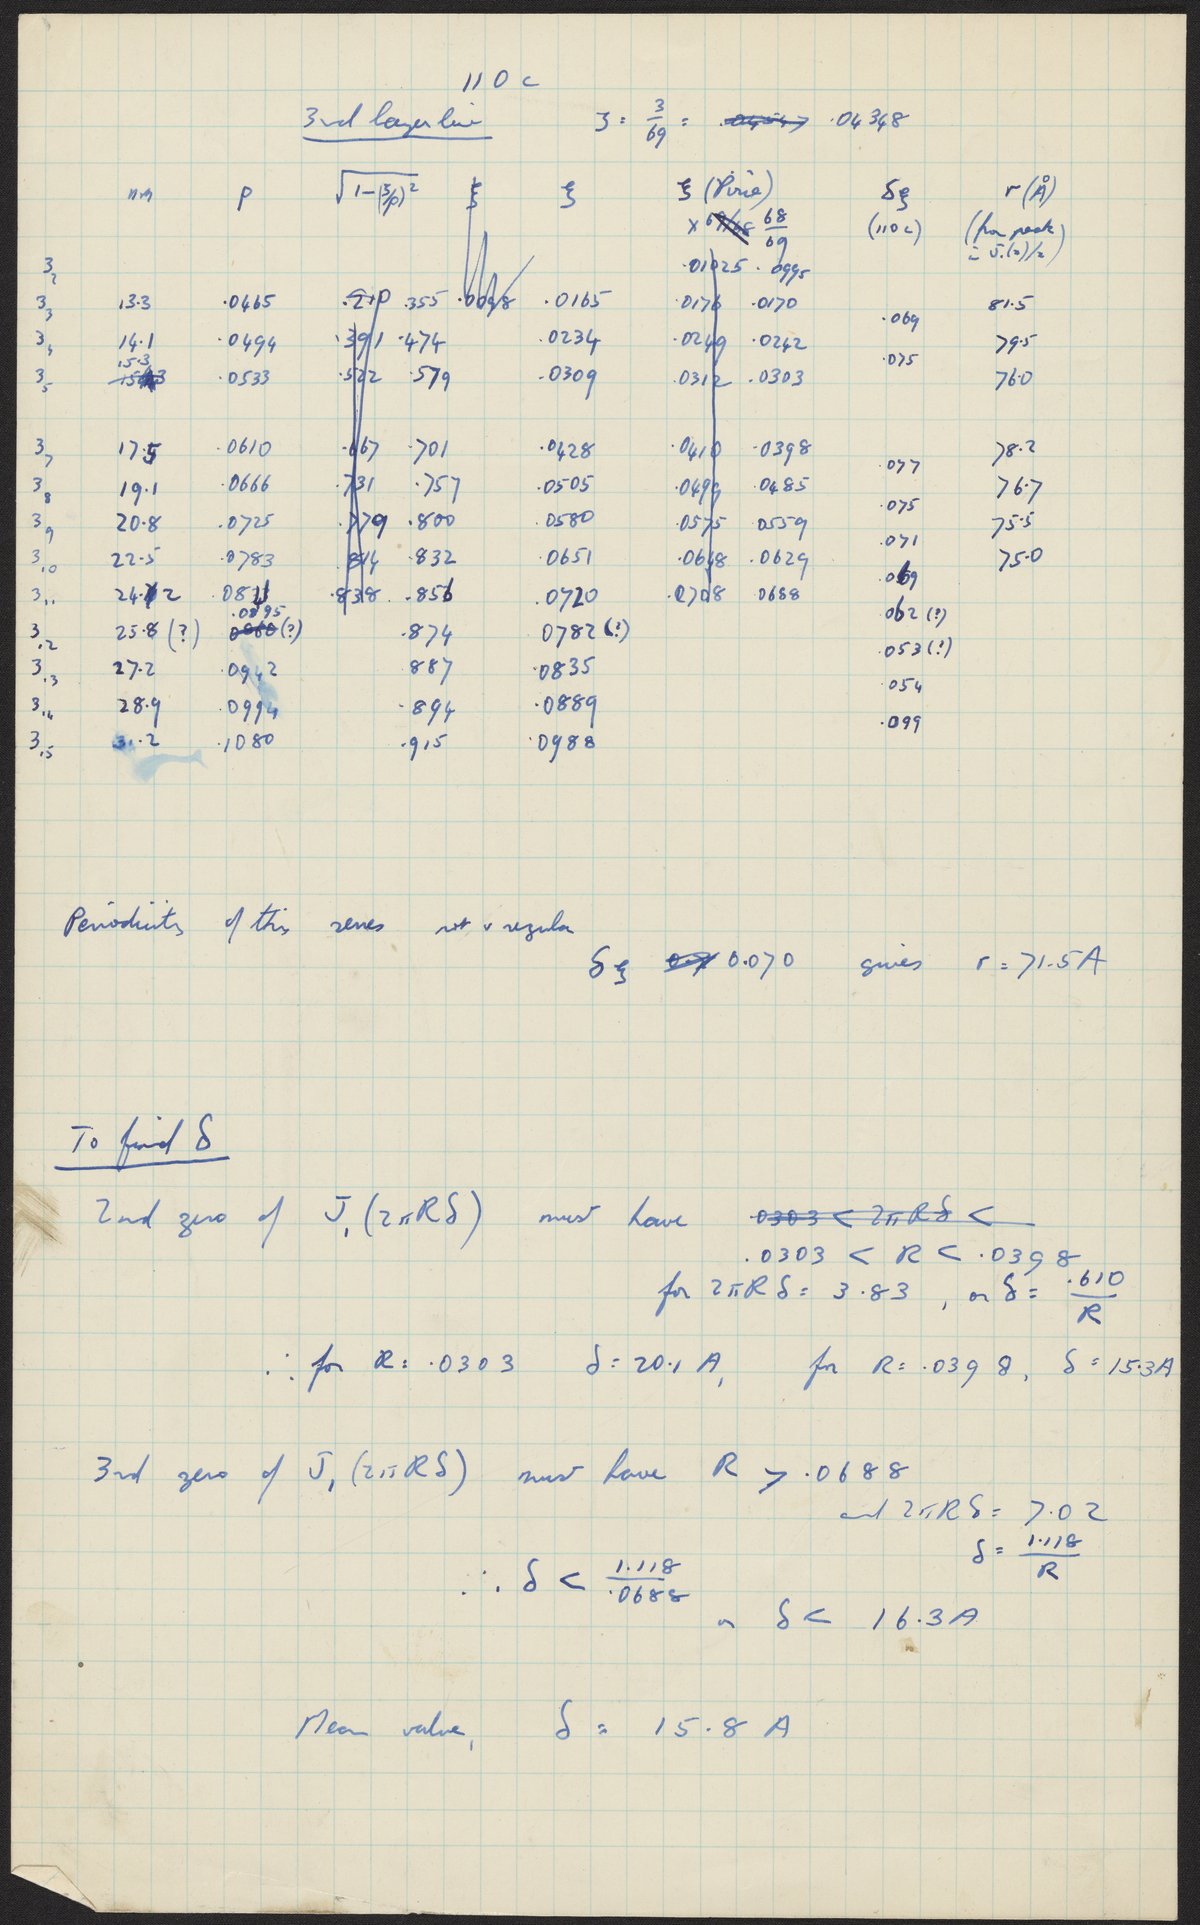 110 c
3rd layer line ζ = 3/69 = .04348
mm p √1-(ζ/p)² ξ ξ ξ (Pirie) δξ r (Å)
x 68/69 (110 c) (from peak
= J₁(x)/2)
3₂ .01025 .0995
3₃ 13.3 .0465 .210 .355 .0098 .0165 .0176 .0170 81.5
.069
3₄ 14.1 .0494 .391 .474 .0234 .0249 .0242 79.5
.075
3₅ 15.3 .0533 .522 .579 .0309 .0312 .0303 76.0
3₇ 17.5 .0610 .667 .701 .0428 .0410 .0398 78.2
.077
3₈ 19.1 .0666 .731 .757 .0505 .0499 .0485 76.7
.075
3₉ 20.8 .0725 .779 .800 .0580 .0575 .0559 75.5
.071
3₁₀ 22.5 .0783 .814 .832 .0651 .0648 .0629 75.0
.069
3₁₁ 24.2 .0841 .838 .856 .0720 .0708 .0688
.062 (?)
3₁₂ 25.8 (?) .0895 (?) .874 .0782 (?)
.053 (?)
3₁₃ 27.2 .0942 .887 .0835
.054
3₁₄ 28.9 .0994 .894 .0889
.099
3₁₅ 31.2 .1080 .915 .0988
Periodicity of this series not v regular
δξ 0.070 gives r = 71.5 A
To find δ
2nd zero of J₁(2πRδ) must have .0303 < 2πRδ <
.0303 < R < .0398
for 2πRδ = 3.83 , or δ = .610/R
∴ for R = .0303 δ = 20.1 A, for R = .0398, δ = 15.3 A
3rd zero of J₁(2πRδ) must have R > .0688
and 2πRδ = 7.02
δ = 1.118/R
∴ δ < 1.118/.0688
or δ < 16.3 A
Mean value, δ = 15.8 A